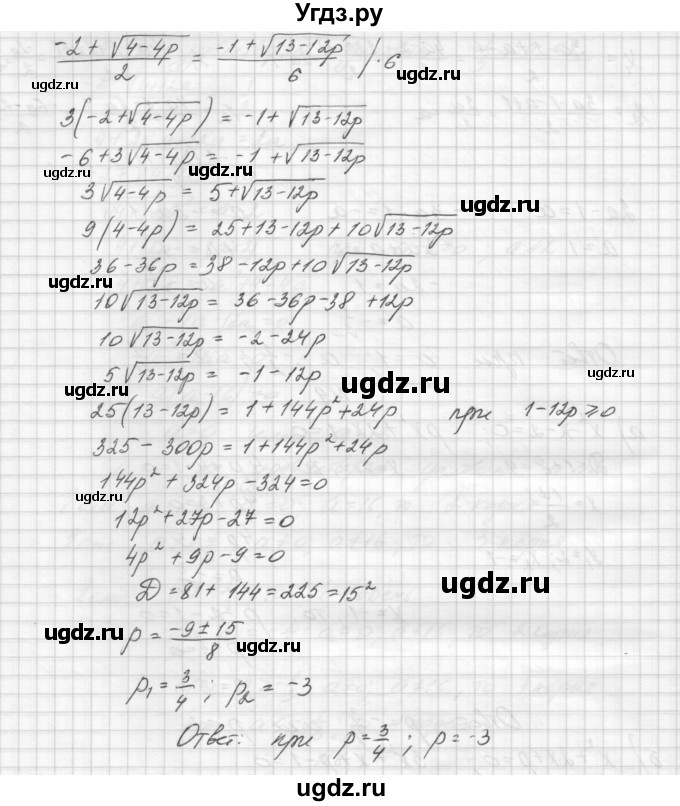 Угдз.ру
(-2 + √(4-4p))/2 = (-1 + √(13-12p))/6 /·6
ugdz.ru ugdz.ru
3(-2+√(4-4p)) = -1 + √(13-12p)
-6+3√(4-4p) = -1 + √(13-12p)
ugdz.ru ugdz.ru
3√(4-4p) = 5+√(13-12p)
ugdz.ru
9(4-4p) = 25+13-12p+10√(13-12p)
36-36p = 38-12p+10√(13-12p)
ugdz.ru ugdz.ru
10√(13-12p) = 36-36p-38+12p
10√(13-12p) = -2-24p
5√(13-12p) = -1-12p
ugdz.ru ugdz.ru ugdz.ru
25(13-12p) = 1+144p²+24p при 1-12p⩾0
325-300p = 1+144p²+24p
ugdz.ru ugdz.ru
144p²+324p-324=0
ugdz.ru
12p²+27p-27=0
4p²+9p-9=0
Д=81+144=225=15²
ugdz.ru
ugdz.ru ugdz.ru
p = (-9±15)/8
p₁ = 3/4; p₂ = -3
Ответ: при p = 3/4; p = -3
ugdz.ru